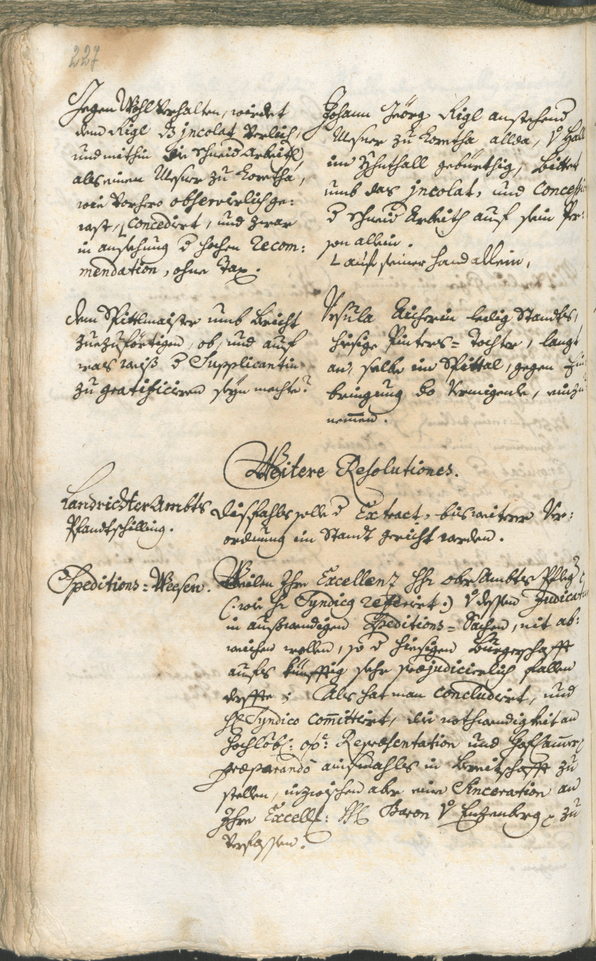 227
Gegen Wohl Verhalten, wirdet
dem Rigl dz jncolat Verlich,
und mithin die schneid Arbeith,
als einem Mesner zu Loretha,
wie Vorhero observirlich ge:
west, concedirt, und zwar
in ansehung d hochen Recom:
mendation, ohne Tax.
Johann Georg Rigl anstehend
Mesner zu Loretha allda, V Hall
im gebürthig, bittet
umb das jncolat, und
d schneid Arbeith auf sein Per:
son allein.
auf seiner hand allein,
dem Spittlmaister umb Bericht
zuezuförtigen, ob, und auf
was weiß d Supplicantin
zu gratificieren seyn mechte?
Ursula Aicherin ledig Standts,
hiesige Pinters=Tochter, langt
an, selbe im Spittal, gegen Zu
bringung do Vermigents, einzu
nemmen.
Weitere Resolutiones.
LandrichterAmbts
Pfandtschilling.
dissfahls solle d Extract, bis weitere Ver:
ordnung im Standt gericht werden.
Speditions=Weesen.
Weilen Ihro Excellenz HH obr Ambts Pfleg
(: wie H Syndicq referirt :) V dessen
in außwendigen Speditions=Sachen, nit ab:
weichen wollen, so d hiesigen Burgerschafft
aufs künfftig sehr præjudicirlich fallen
derffte; Als hat man concludirt, und
H Syndico committirt, die nothwendigkeit an
hochlöb: oö: Repræsentation und Hofkammer
præparando in Bereitschafft zu
stellen, inzwischen aber eine Sinceration an
Ihro Excell: H Baron V Enzenberg zu
Verfassen.